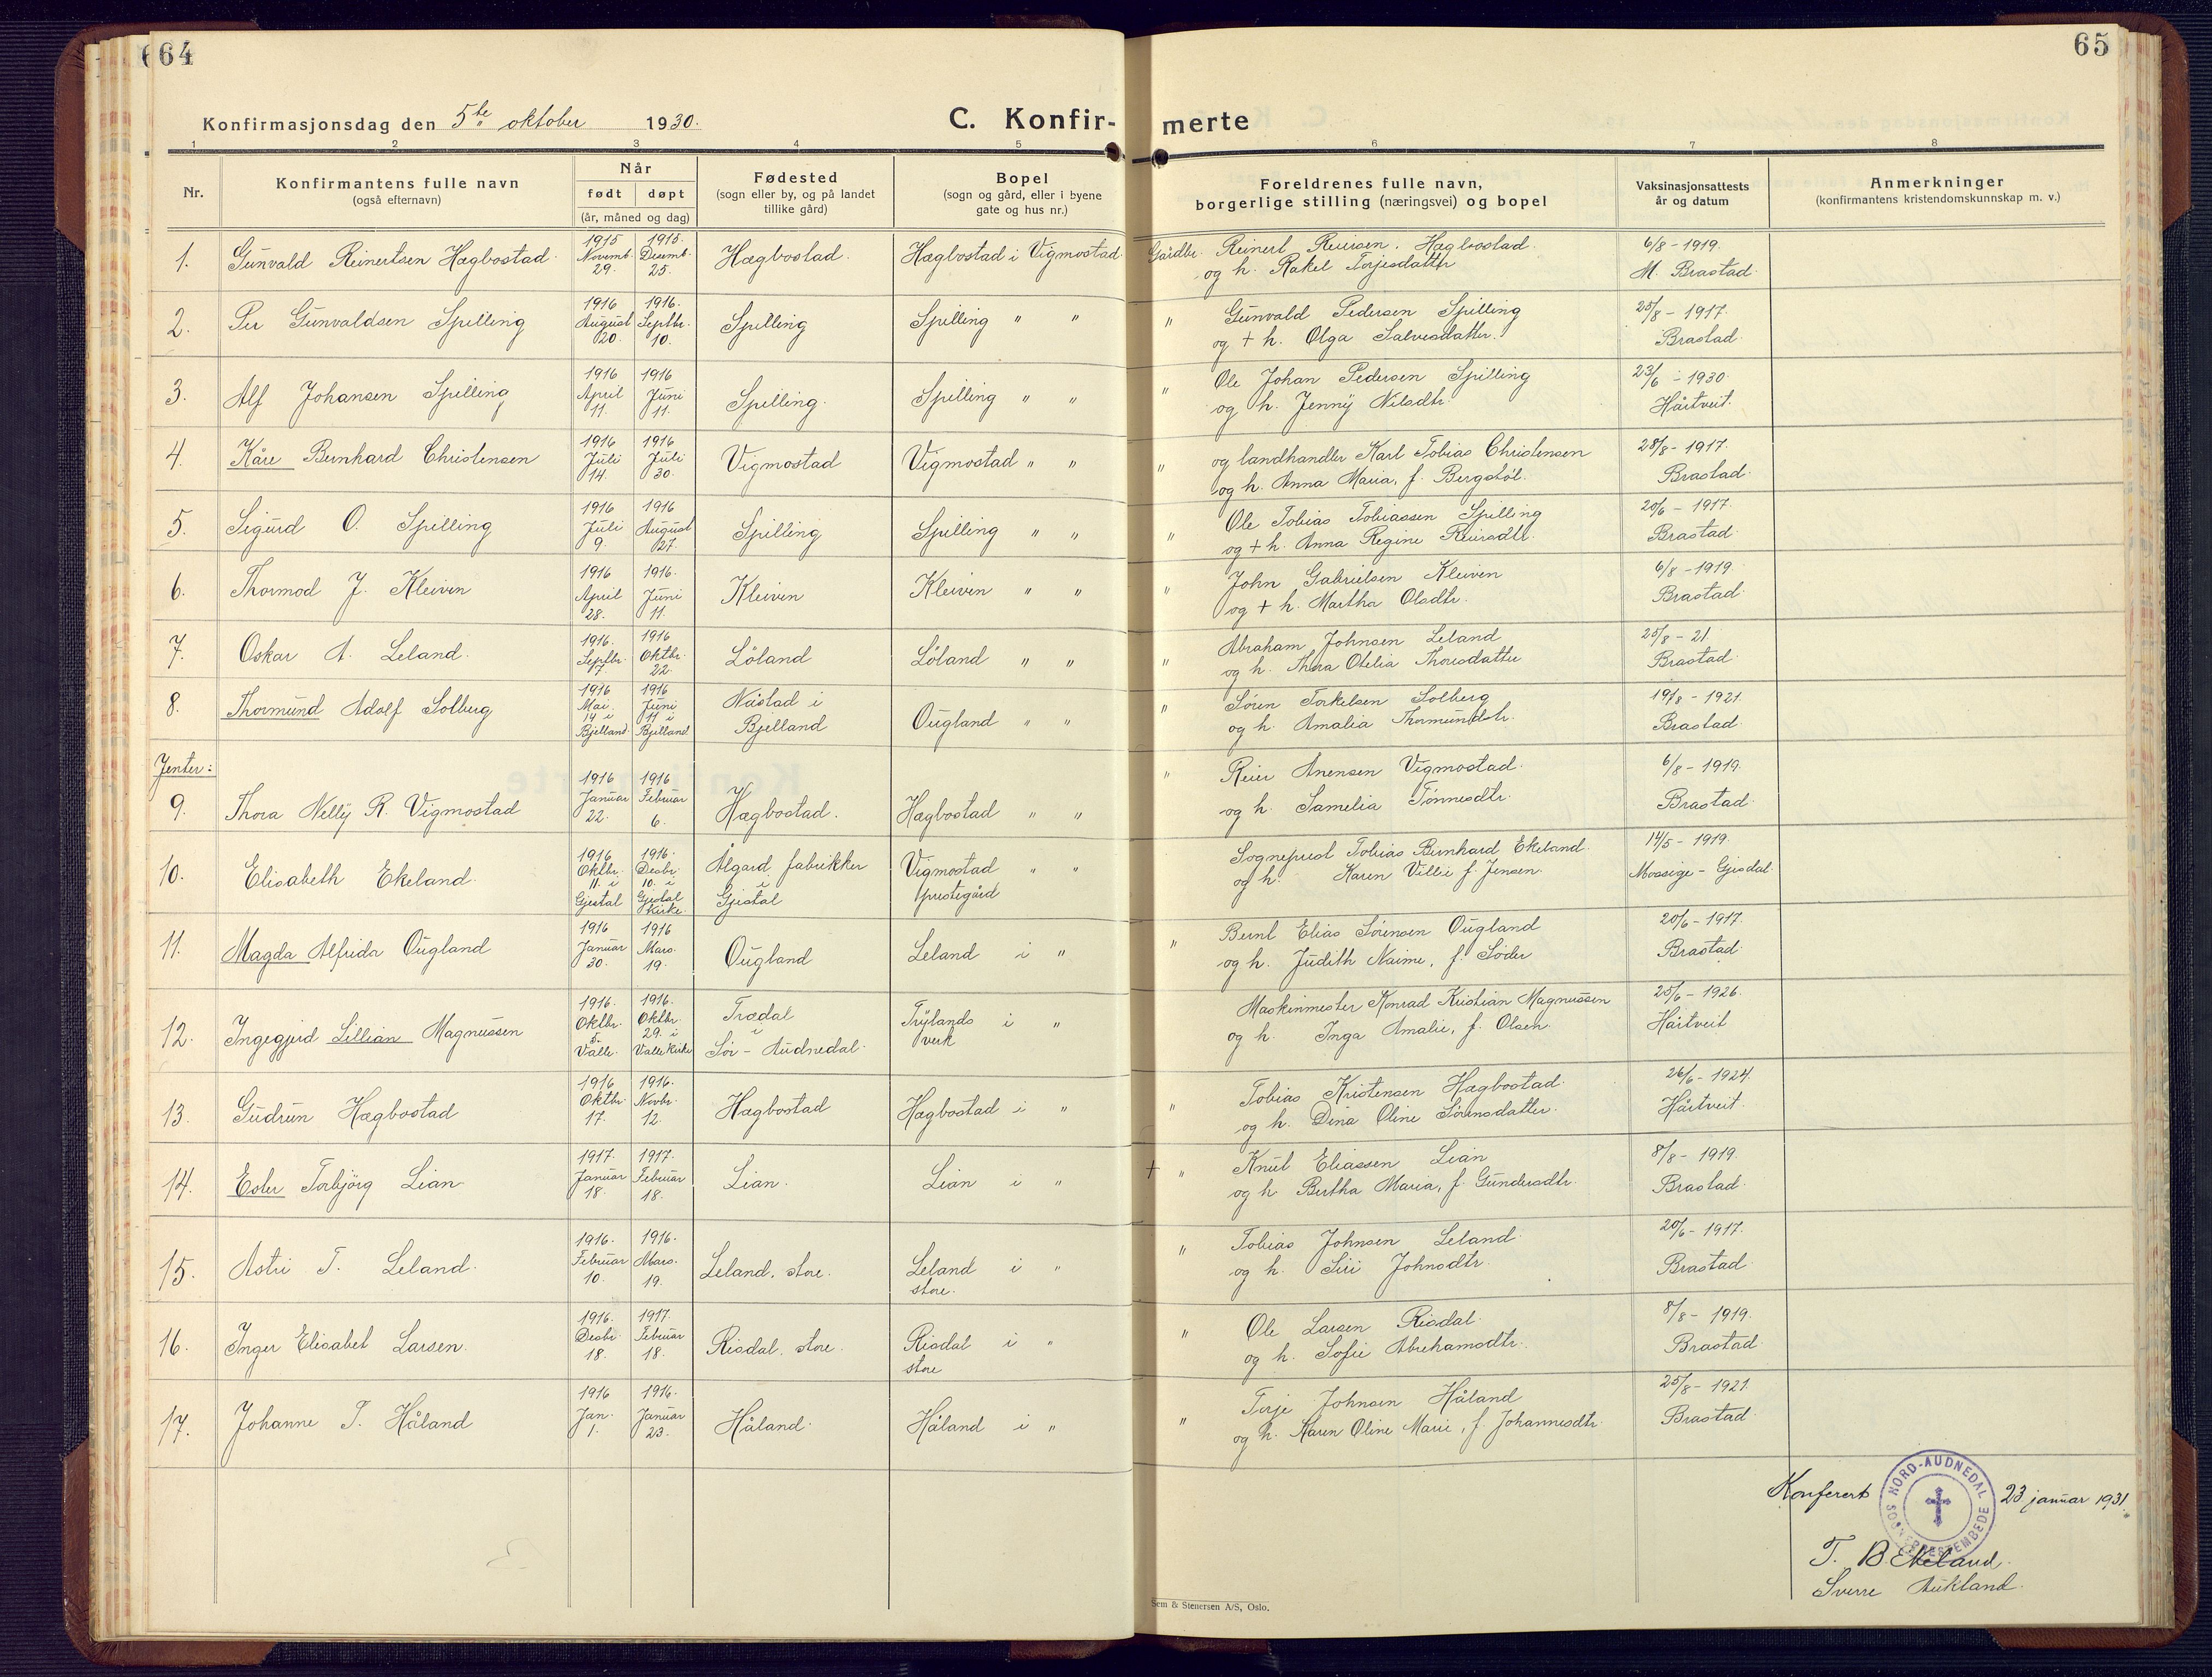 64
65
Konfirmasjonsdag den 5te oktober 1930.
C. Konfir-
merte
1 2 3 4 5 6 7 8
Nr.
Konfirmantens fulle navn
(også efternavn)
Når
født døpt
(år, måned og dag)
Fødested
(sogn eller by, og på landet
tillike gård)
Bopel
(sogn og gård, eller i byene
gate og hus nr.)
Foreldrenes fulle navn,
borgerlige stilling (næringsvei) og bopel
Vaksinasjonsattests
år og datum
Anmerkninger
(konfirmantens kristendomskunnskap m. v.)
1. Gunvald Reinertsen Hægbostad.
1915 Novemb. 29.
1915. Desemb. 25.
Hægbostad.
Hægbostad i Vigmostad.
Gårdbr. Reinert Reiersen Hægbostad.
og h. Rakel Torjesdatter
6/8 - 1919.
M. Brastad.
2. Per Gunvaldsen Spilling
1916 August 20.
1916. Septbr. 10.
Spilling
Spilling " "
" Gunvald Pedersen Spilling
og + h. Olga Salvesdatter.
25/8 - 1917.
Brastad.
3. Alf Johansen Spilling
1916 April 11.
1916 Juni 11.
Spilling.
Spilling " "
" Ole Johan Pedersen Spilling
og h. Jenny Nilsdtr.
23/6 - 1930.
Hårtveit.
4. Kåre Bernhard Christensen
1916 Juli 14.
1916 Juli 30.
Vigmostad
Vigmostad " "
" og landhandler Karl Tobias Christensen
og h. Anna Maria, f. Bergstöl.
28/8 - 1917.
Brastad.
5. Sigurd O. Spilling
1916 Juli 9
1916 August 27.
Spilling
Spilling " "
" Ole Tobias Tobiassen Spilling
og + h. Anna Regine Reiersdtr.
20/6 - 1917.
Brastad.
6. Thormod J. Kleiven
1916 April 28.
1916. Juni 11.
Kleiven
Kleiven " "
" John Gabrielsen Kleiven
og + h. Martha Olsdtr.
6/8 - 1919.
Brastad.
7. Oskar A. Leland.
1916. Septbr. 17.
1916 Oktbr. 22.
Löland
Löland " "
" Abraham Johnsen Leland
og h. Thea Otelia Thoresdatter
25/8 - 21.
Brastad.
8. Thormund Adolf Solberg
1916 Mai 14 i Bjelland.
1916 Juni 11 i Bjelland
Nåstad i
Bjelland
Öugland " "
" Sören Torkelsen Solberg
og h. Amalia Thormundsdtr.
19/8 - 1921.
Brastad.
Jenter:
9. Thora Nelly R. Vigmostad
1916 Januar 22.
1916 Februar 6.
Hægbostad.
Hægbostad " "
" Reier Anensen Vigmostad.
og h. Samelia Tönnesdtr.
6/8 - 1919.
Brastad.
10. Elisabeth Ekeland.
1916 Oktbr. 11. i Gjestal
1916. Desbr. 10. i Gjestal kirke.
Ålgård fabrikker
i
Gjestal
Vigmostad " "
prestegård
Sogneprest Tobias Bernhard Ekeland.
og h. Karen Villie f. Jensen.
14/5 - 1919.
Mossige - Gjesdal.
11. Magda Alfrida Öugland
1916 Januar 30.
1916 Mars. 19.
Öugland
Leland i "
" Bernt Elias Sörensen Öugland
og h. Judith Naime, f. Söder
20/6 - 1917.
Brastad.
12. Ingegjerd Lillian Magnussen
1916. Oktbr. 5. Valle.
1916. Oktbr. 29. i Valle kirke
Trædal
i
Sör - Audnedal.
Trylands i "
verk
Maskinmester Konrad Kristian Magnussen
og h. Inga Amalie, f. Olsen.
25/6 - 1926.
Hårtveit
13. Gudrun Hægbostad
1916 Oktbr. 17.
1916. Novbr. 12.
Hægbostad
Hægbostad i "
" Tobias Kristensen Hægbostad.
og h. Dina Oline Sörensdatter.
26/6 - 1924.
Hårtveit.
14. Ester Torbjörg Lian
1917. Januar 18.
1917. Februar 18.
Lian.
Lian i "
+ " Knut Eliassen Lian
og h. Bertha Maria, f. Gundersdtr.
8/8 - 1919.
Brastad.
15. Astri T. Leland.
1916. Februar 10.
1916. Mars. 19.
Leland, store.
Leland i "
store.
" Tobias Johnsen Leland.
og h. Siri Johnsdtr.
20/6 - 1917.
Brastad.
16. Inger Elisabet Larsen.
1916. Desbr. 18.
1917. Februar 18.
Risdal, store.
Risdal i "
store
" Ole Larsen Risdal.
og h. Sofie Abrahamsdtr.
8/8 - 1919.
Brastad.
17. Johanne T. Håland
1916 Jan. 1.
1916. Januar 23.
Håland.
Håland i "
" Terje Johnsen Håland
og h. Karen Oline Marie, f. Johannesdtr.
25/8 - 1921.
Brastad.
Konferert 23 januar 1931.
NORD-AUDNEDAL SOGNEPRESTEMBEDE
T. B. Ekeland.
Sverre Aukland.
Sem & Stenersen A/S, Oslo.